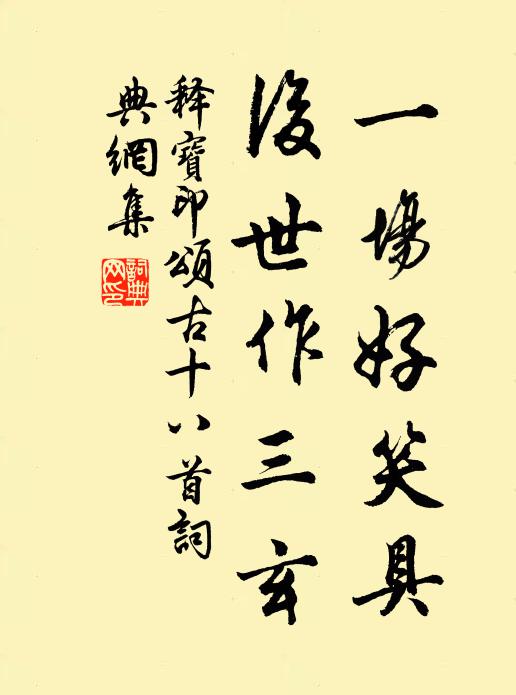 一場好笑具
後世作三玄
釋寶印頌古十八首詞
典網集
詞典
网印